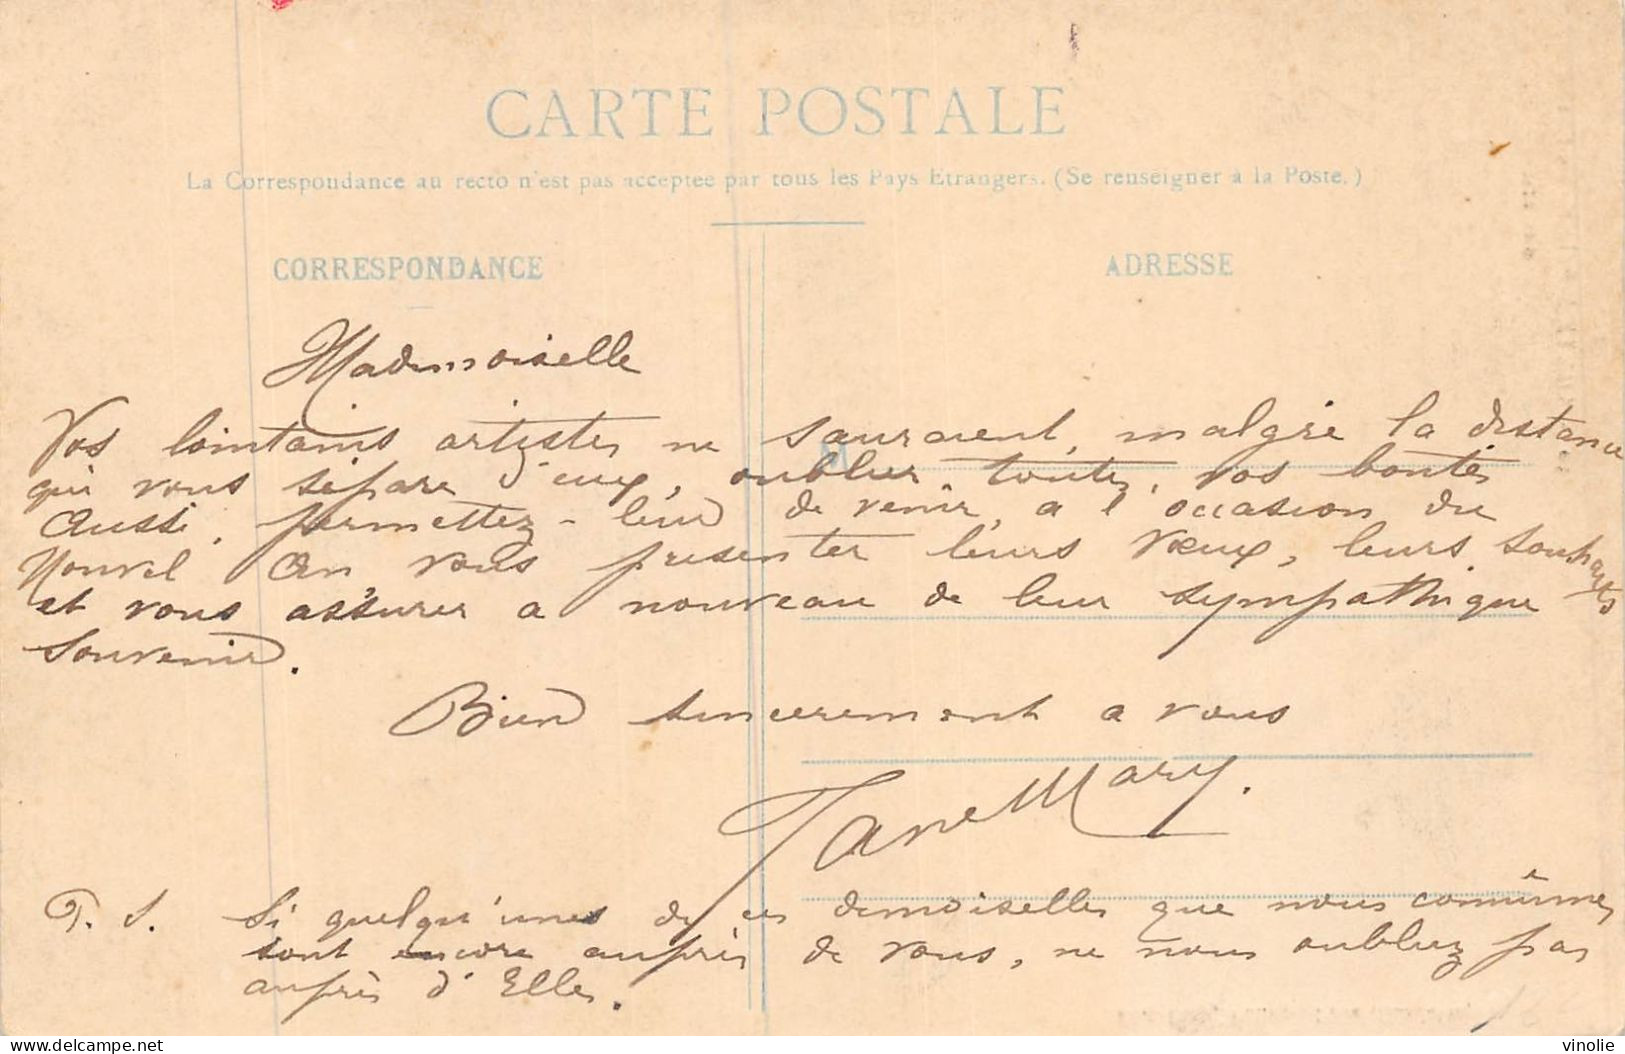 CARTE POSTALE
La Correspondance au recto n'est pas acceptée par tous les Pays Etrangers. (Se renseigner à la Poste.)
CORRESPONDANCE
ADRESSE
M
Mademoiselle
Vos lointains artistes ne sauraient, malgré la distance
qui vous sépare d'eux, oublier toutes vos bontés
Aussi, permettez-leur de venir, a l'occasion du
Nouvel An, vous présenter leurs vœux, leurs souhaits
et vous assurer a nouveau de leur sympathique
souvenir.
Bien sincerement a vous
Jane Mary.
P.S. Si quelqu'unes de ces demoiselles que nous connûmes
sont encore auprès de vous, ne nous oubliez pas
auprès d'Elles.
delcampe.net
vinolie